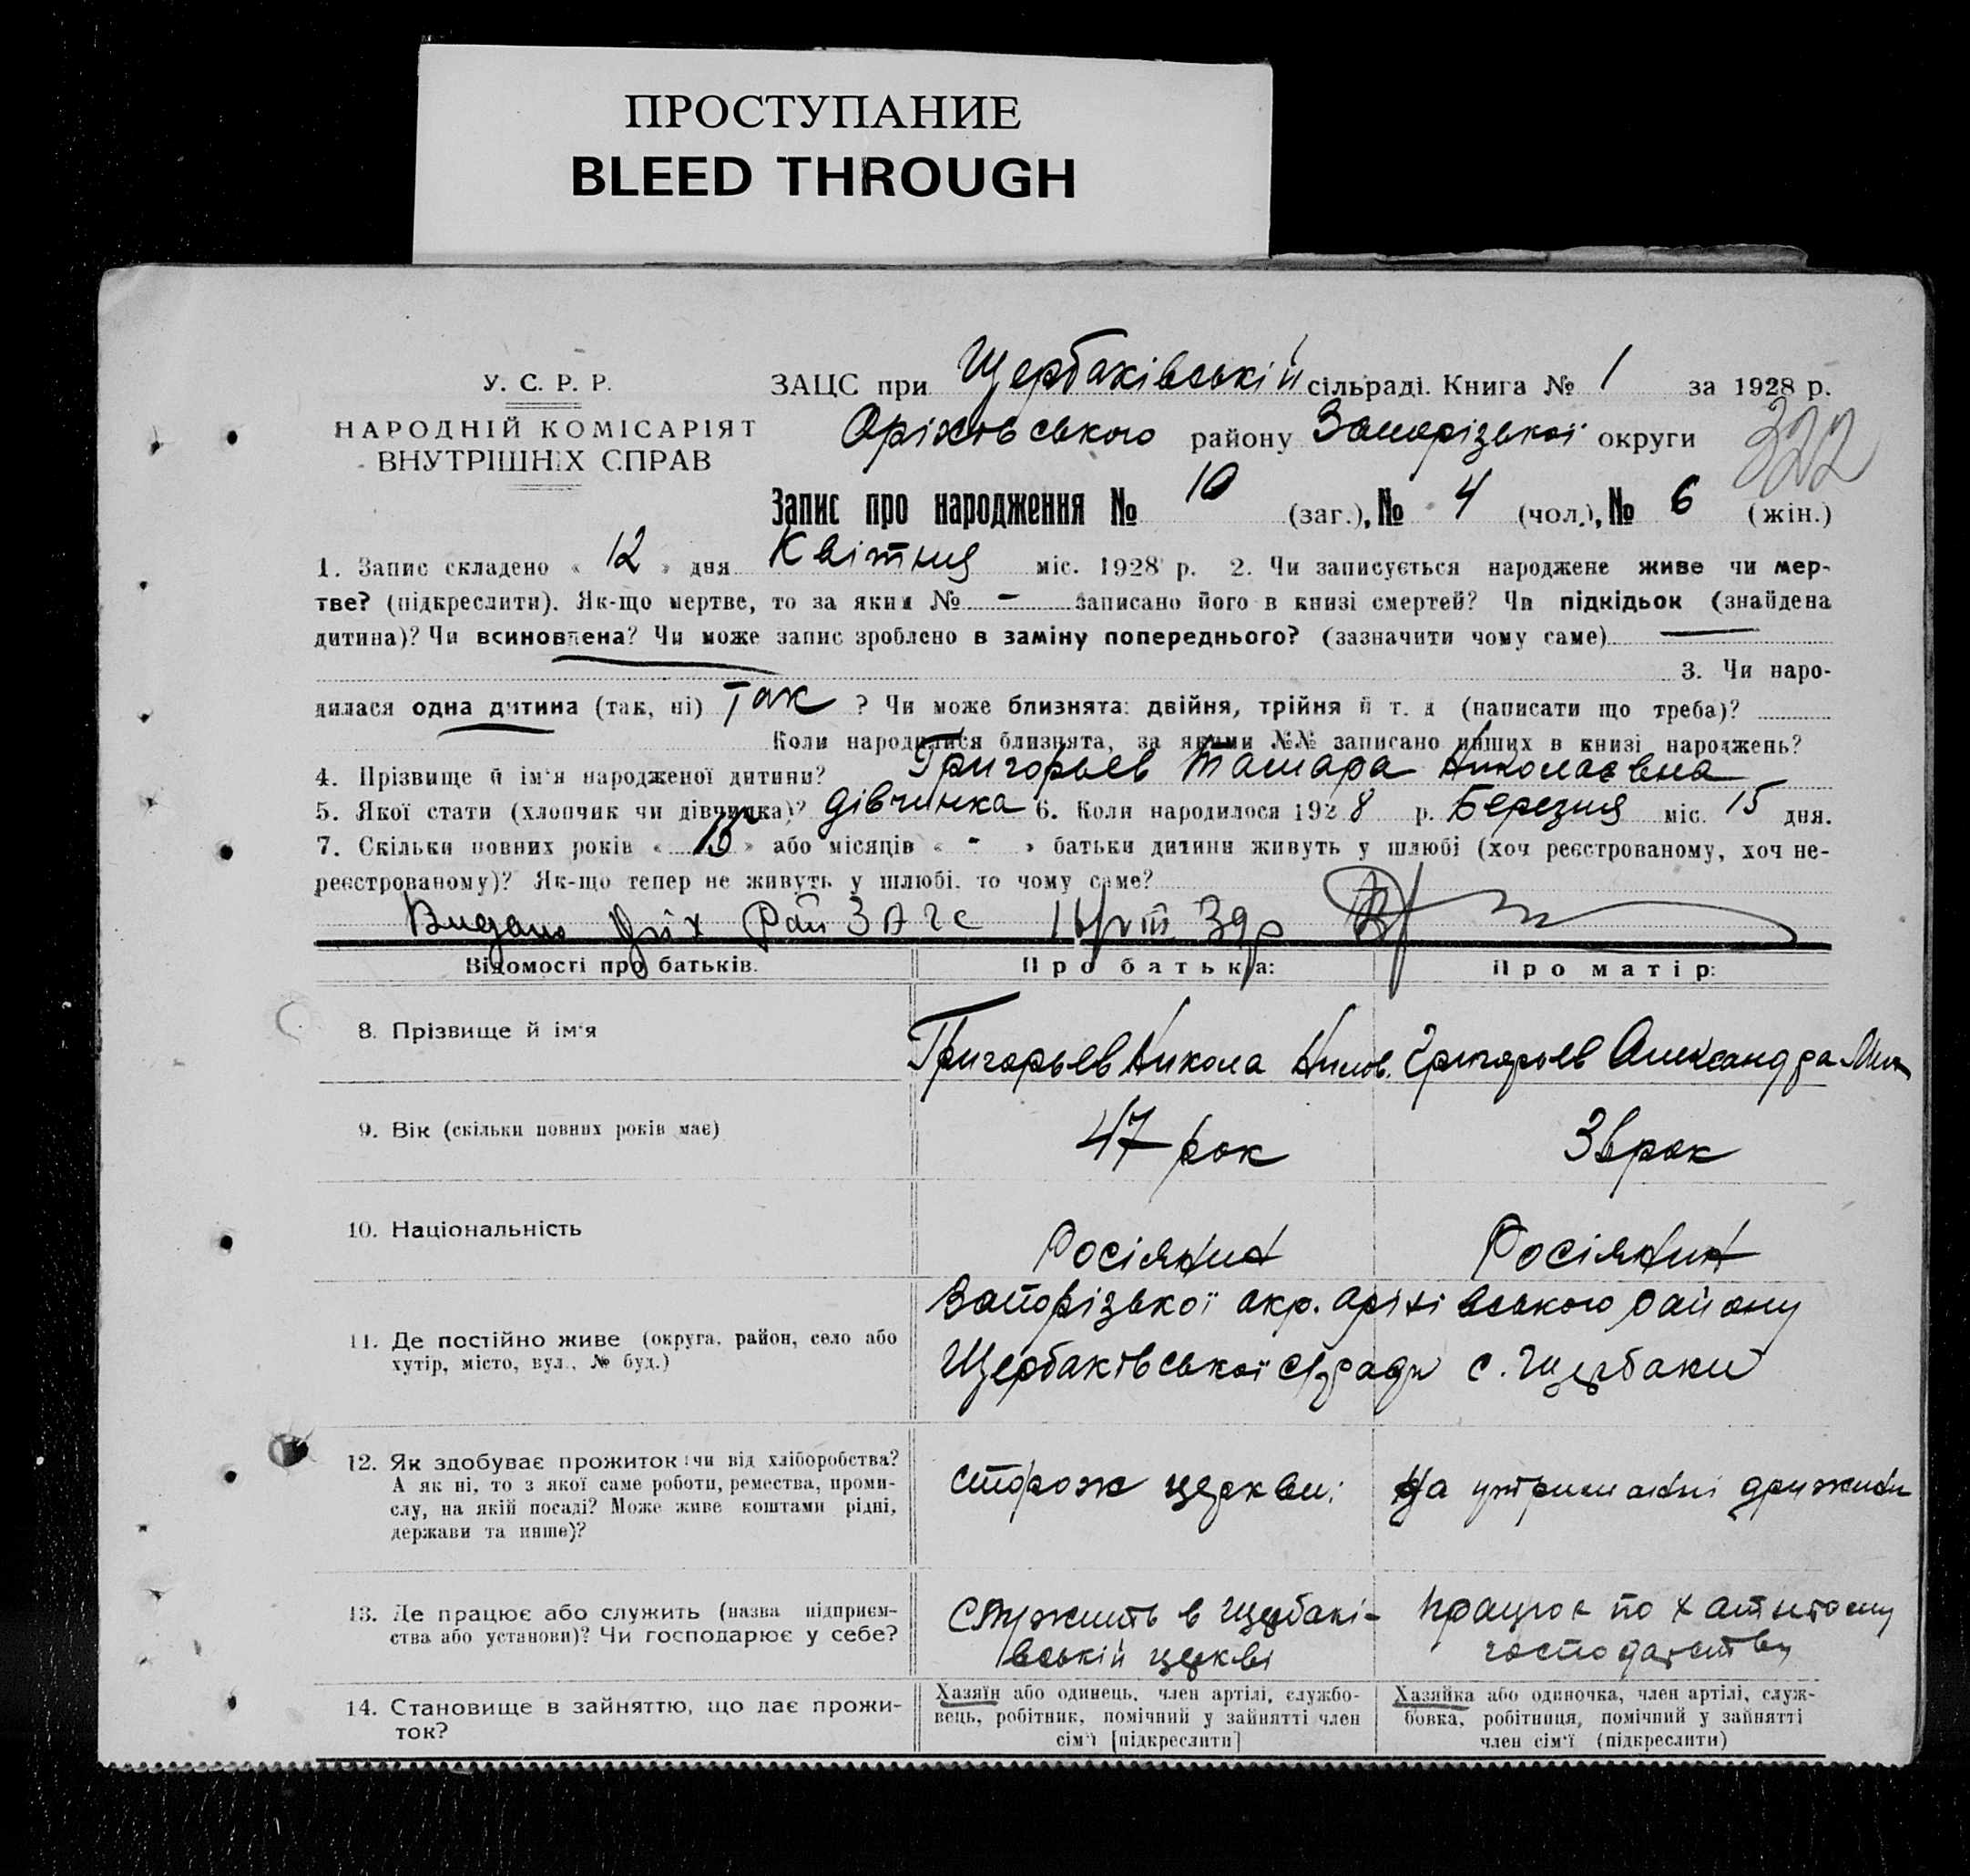 ПРОСТУПАНИЕ
BLEED THROUGH
У. С. Р. Р.
НАРОДНІЙ КОМІСАРІЯТ
ВНУТРІШНІХ СПРАВ
ЗАЦС при Щербаківській сільраді. Книга № 1 за 1928 р.
Оріхівського району Запорізької округи
322
Запис про народження № 10 (заг.), № 4 (чол.), № 6 (жін.)
1. Запис складено « 12 » дня Квітня міс. 1928 р. 2. Чи записується народжене живе чи мер-
тве? (підкреслити). Як-що мертве, то за яким № - записано його в книзі смертей? Чи підкідьок (знайдена
дитина)? Чи всиновлена? Чи може запис зроблено в заміну попереднього? (зазначити чому саме) —
3. Чи наро-
дилася одна дитина (так, ні) Так ? Чи може близнята: двійня, трійня й т. д (написати що треба)?
Коли народилися близнята, за якими №№ записано инших в книзі народжень?
4. Прізвище й ім'я народженої дитини? Григорьев Тамара Николаевна
5. Якої стати (хлопчик чи дівчинка)? дівчинка 6. Коли народилося 1928 р. Березня міс. 15 дня.
7. Скільки повних років « » або місяців « - » батьки дитини живуть у шлюбі (хоч реєстрованому, хоч не-
реєстрованому)? Як-що тепер не живуть у шлюбі, то чому саме?
Видано Оріх Рай ЗАГС
Відомості про батьків. Про батька: Про матір:
8. Прізвище й ім'я
Григорьев Никола Григорьев Александра
9. Вік (скільки повних років має)
47 рок 36 рок
10. Національність
Росіянин Росіянин
11. Де постійно живе (округа, район, село або
хутір, місто, вул., № буд.)
Запорізької окр. Оріхівського району
Щербаківської с/ради с. Щербаки
12. Як здобуває прожиток: чи від хліборобства?
А як ні, то з якої саме роботи, ремества, проми-
слу, на якій посаді? Може живе коштами рідні,
держави та инше)?
сторож церкви; На утриманні дружини
13. Де працює або служить (назва підприєм-
ства або установи)? Чи господарює у себе?
Служить в Щербакі-
вській церкві
працює по хатньому
господарству
14. Становище в зайняттю, що дає прожи-
ток?
Хазяїн або одинець, член артілі, службо-
вець, робітник, помічний у зайнятті член
сім'ї [підкреслити]
Хазяйка або одиночка, член артілі, служ-
бовка, робітниця, помічний у зайнятті
член сім'ї (підкреслити)